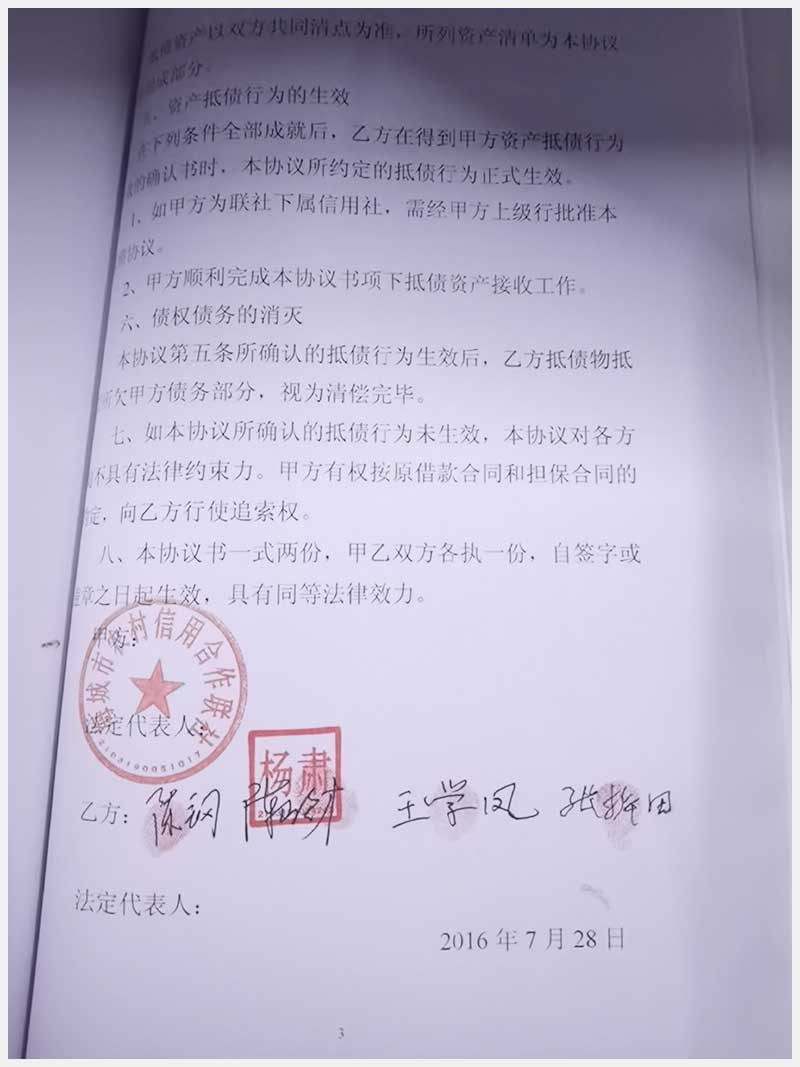 抵债资产以双方共同清点为准，所列资产清单为本协议
组成部分。
、资产抵债行为的生效
在下列条件全部成就后，乙方在得到甲方资产抵债行为
的确认书时，本协议所约定的抵债行为正式生效。
1、如甲方为联社下属信用社，需经甲方上级行批准本
协议。
2、甲方顺利完成本协议书项下抵债资产接收工作。
六、债权债务的消灭
本协议第五条所确认的抵债行为生效后，乙方抵债物抵
所欠甲方债务部分，视为清偿完毕。
七、如本协议所确认的抵债行为未生效，本协议对各方
均不具有法律约束力。甲方有权按原借款合同和担保合同的
约定，向乙方行使追索权。
八、本协议书一式两份，甲乙双方各执一份，自签字或
盖章之日起生效，具有同等法律效力。
甲方：
海城市农村信用合作联社
2103190051017
法定代表人：
杨肃
乙方：陈钢 王学凤
法定代表人：
2016年7月28日
3